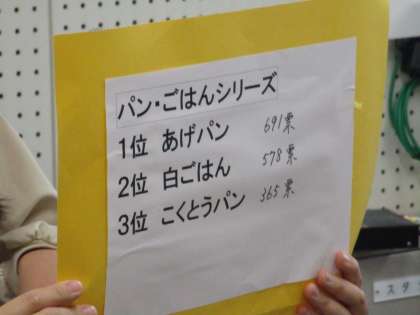 パン・ごはんシリーズ
1位 あげパン 691票
2位 白ごはん 578票
3位 こくとうパン 365票
スタ